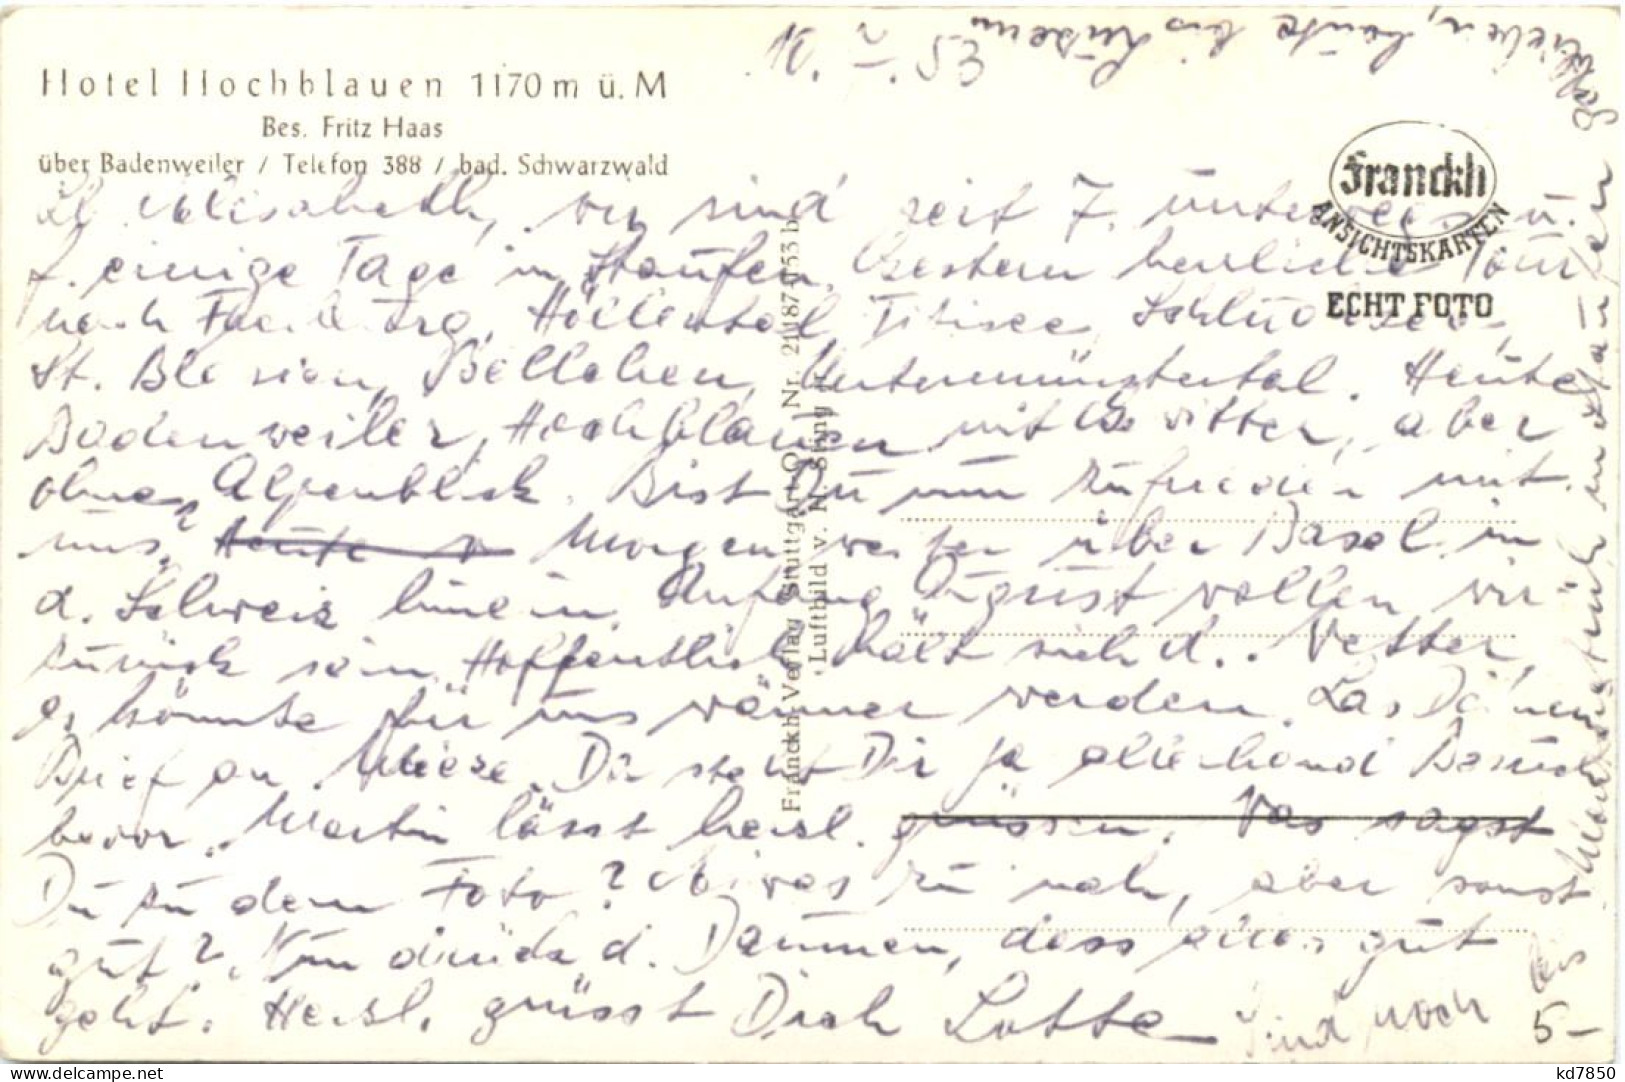 Hotel Hochblauen 1170 m ü. M
Bes. Fritz Haas
über Badenweiler / Telefon 388 / bad. Schwarzwald
10. V. 53
Franckh
ANSICHTSKARTEN
ECHT FOTO
Franckh-Verlag Stuttgart-O
Luftbild v.
wir sind seit 7. unterwegs u.
f. einige Tage in Staufen. Gestern herrliche Tour
nach Höllental, Titisee, Schluchsee,
St. Blasien, Bellchen, Untermünstertal. Heute
Badenweiler, Hochblauen mit Gewitter, aber
ohne Alpenblick. Bist Du nun zufrieden mit
uns? Morgen weiter über Basel in
d. Schweiz hinein. Anfang August wollen wir
zurück sein. Hoffentlich hält sich d. Wetter,
es könnte für uns wärmer werden.
Brief an Mieze. Du steht Dir ja allerhand Besuch
bevor. Martin lässt herzl. grüssen. Was sagst
Du zu dem Foto? Etwas zu nah, aber sonst
gut? Nun drück d. Daumen, dass alles gut
geht. Herzl. grüsst Dich Lotte
Sind noch
bis
in Staufen
geblieben, heute bis Luzern
5-
kd7850